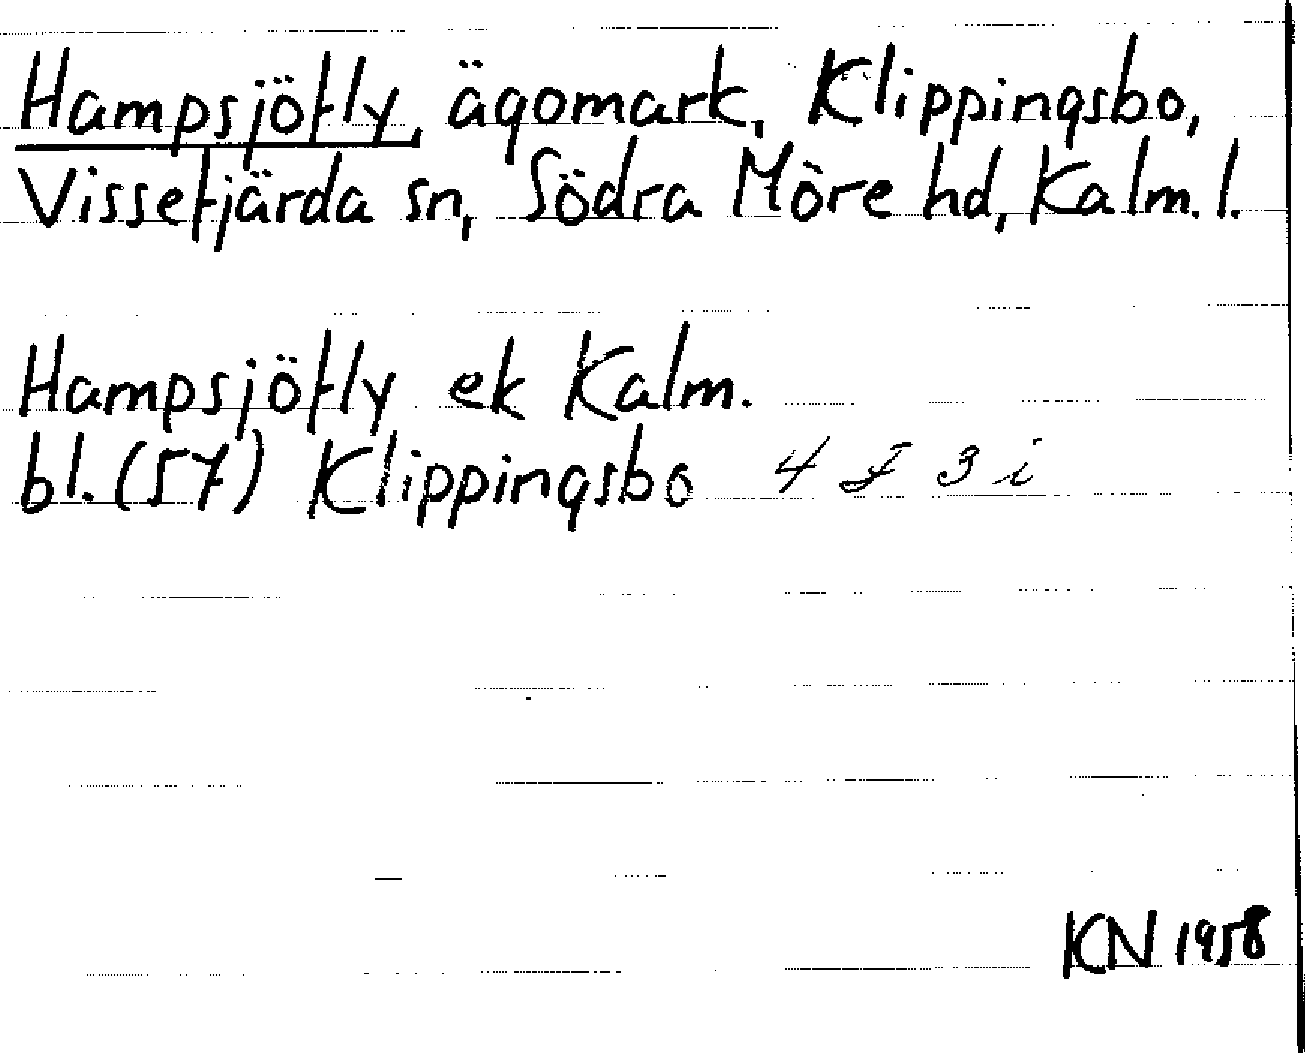 Hampsjöfly, ägomark, Klippingsbo,
Vissefjärda sn, Södra Möre hd, Kalm. l.
Hampsjöfly ek Kalm.
bl. (57) Klippingsbo 4 F 3 i
KN 1958